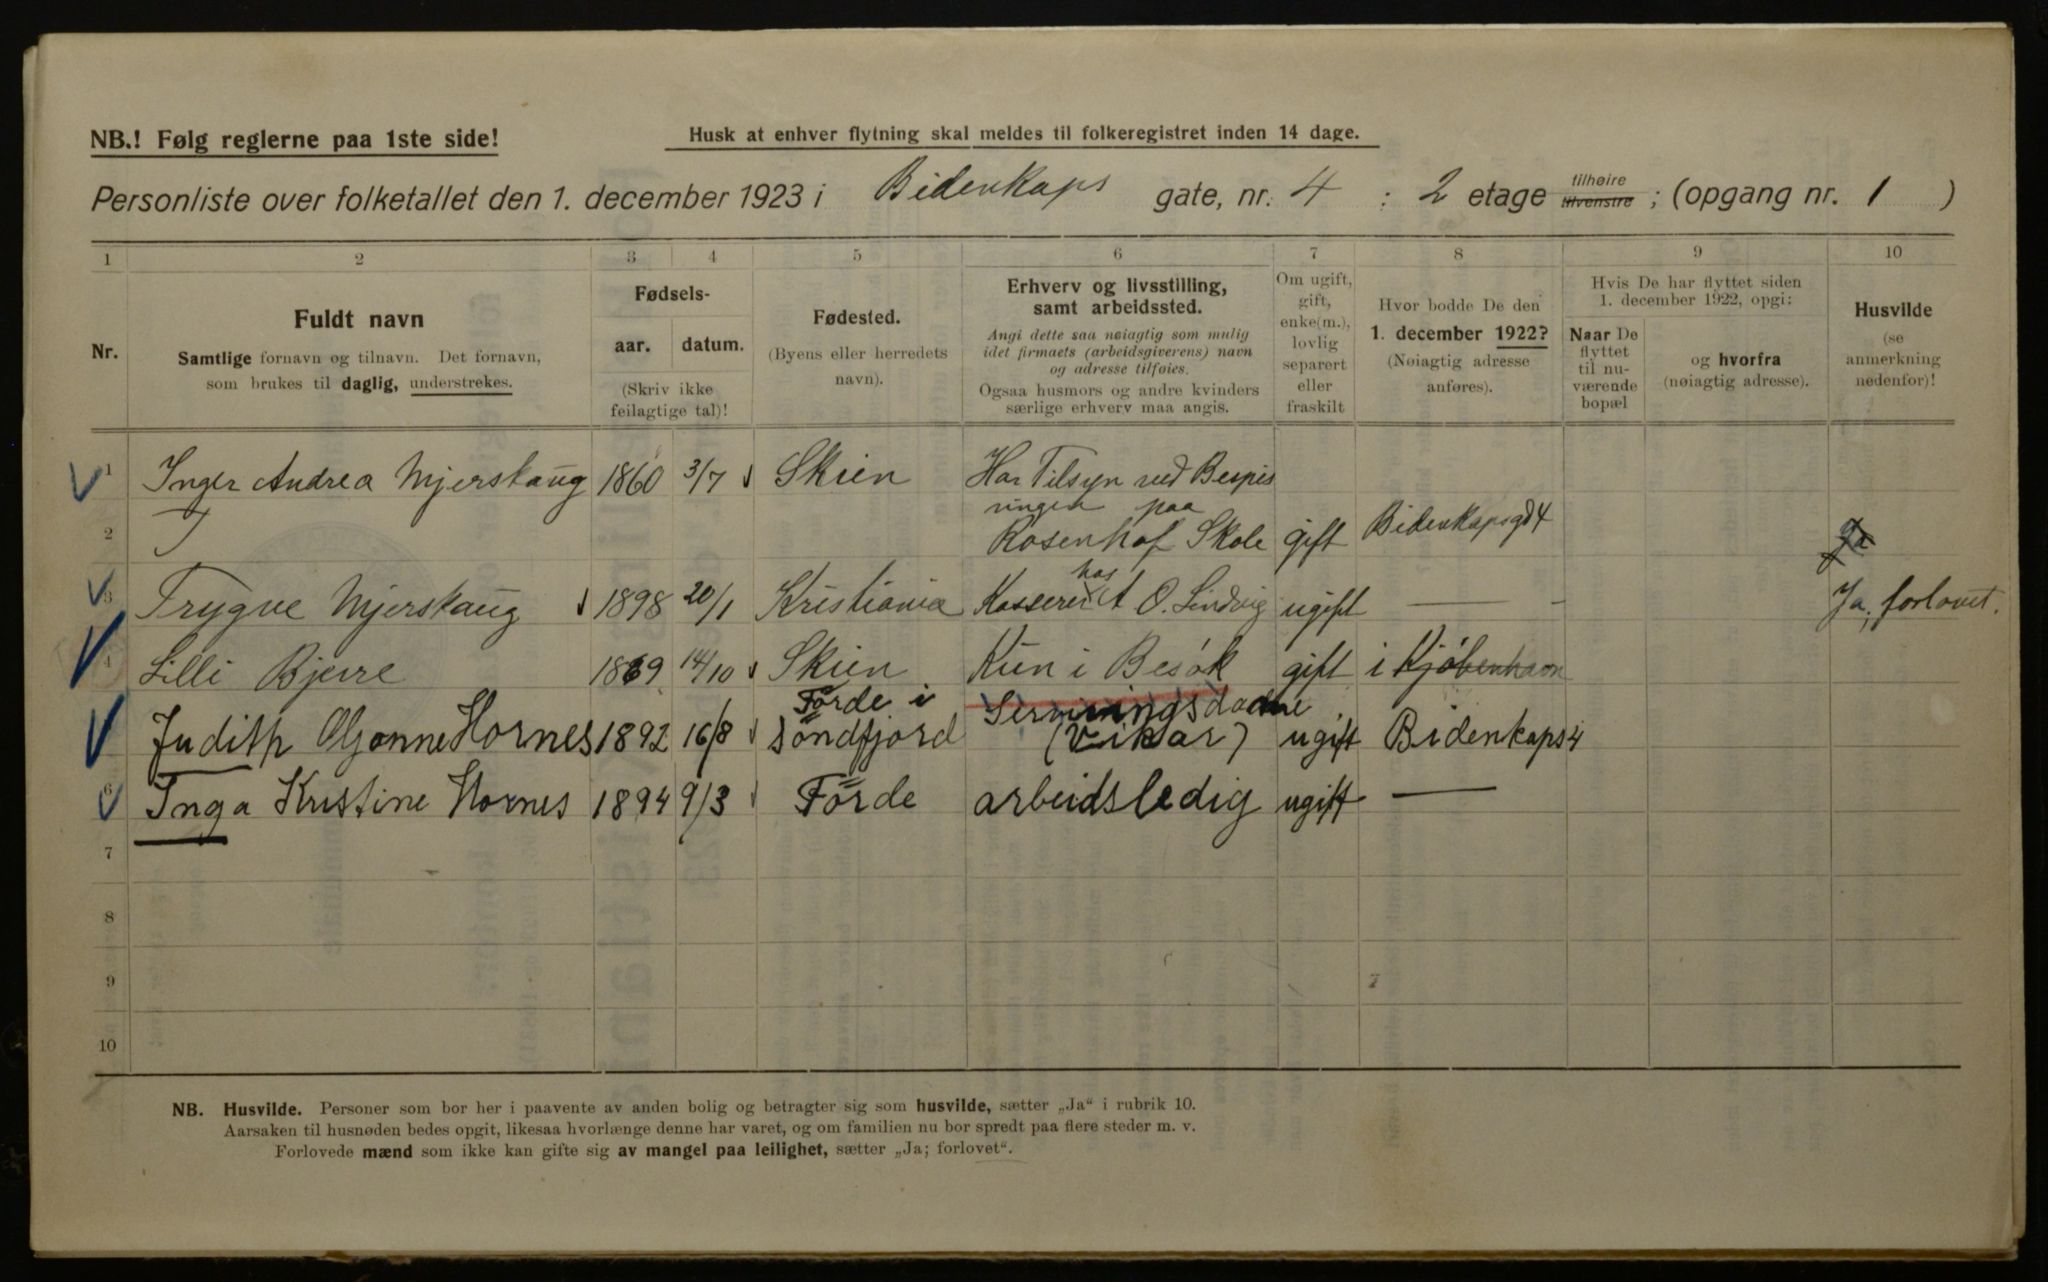 NB.! Følg reglerne paa 1ste side!
Husk at enhver flytning skal meldes til folkeregistret inden 14 dage.
Personliste over folketallet den 1. december 1923 i Bidenkaps gate, nr. 4 : 2 etage tilhøire tilvenstre ; (opgang nr. 1 )
1 2 3 4 5 6 7 8 9 10
Nr.
Fuldt navn
Samtlige fornavn og tilnavn. Det fornavn,
som brukes til daglig, understrekes.
Fødsels-
aar. datum.
(Skriv ikke
feilagtige tal)!
Fødested.
(Byens eller herredets
navn).
Erhverv og livsstilling,
samt arbeidssted.
Angi dette saa nøiagtig som mulig
idet firmaets (arbeidsgiverens) navn
og adresse tilføies.
Ogsaa husmors og andre kvinders
særlige erhverv maa angis.
Om ugift,
gift,
enke(m.),
lovlig
separert
eller
fraskilt
Hvor bodde De den
1. december 1922?
(Nøiagtig adresse
anføres).
Hvis De har flyttet siden
1. december 1922, opgi:
Naar De
flyttet
til nu-
værende
bopæl
og hvorfra
(nøiagtig adresse).
Husvilde
(se
anmerkning
nedenfor)!
1 Inger Andrea Mjerskaug 1860 3/7 Skien Har Tilsyn ved Bespis
ningen paa
2 Rosenhof Skole gift Bidenkapsgd 4 Ja
3 Trygve Mjerskaug 1898 20/1 Kristiania Kasserer hos A O. Lindvig ugift — Ja, forlovet.
4 Lilli Bjerre 1869 14/10 Skien Kun i Besök gift i Kjöbenhavn
Förde i
Judith Oljonne Hornes 1892 16/8 Söndfjord (Vikar) ugift Bidenkaps 4
6 Inga Kristine Hornes 1894 9/3 Förde arbeidsledig ugift —
7
8
9
10
NB. Husvilde. Personer som bor her i paavente av anden bolig og betragter sig som husvilde, sætter „Ja“ i rubrik 10.
Aarsaken til husnøden bedes opgit, likesaa hvorlænge denne har varet, og om familien nu bor spredt paa flere steder m. v.
Forlovede mænd som ikke kan gifte sig av mangel paa leilighet, sætter „Ja; forlovet“.